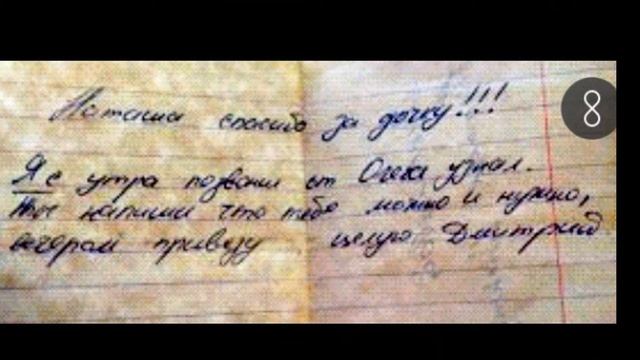 Наташа спасибо за дочку!!!
Я с утра позвоню от Олега узнал.
напиши что тебе можно и нужно,
вечером привезу целую Дмитрий
8